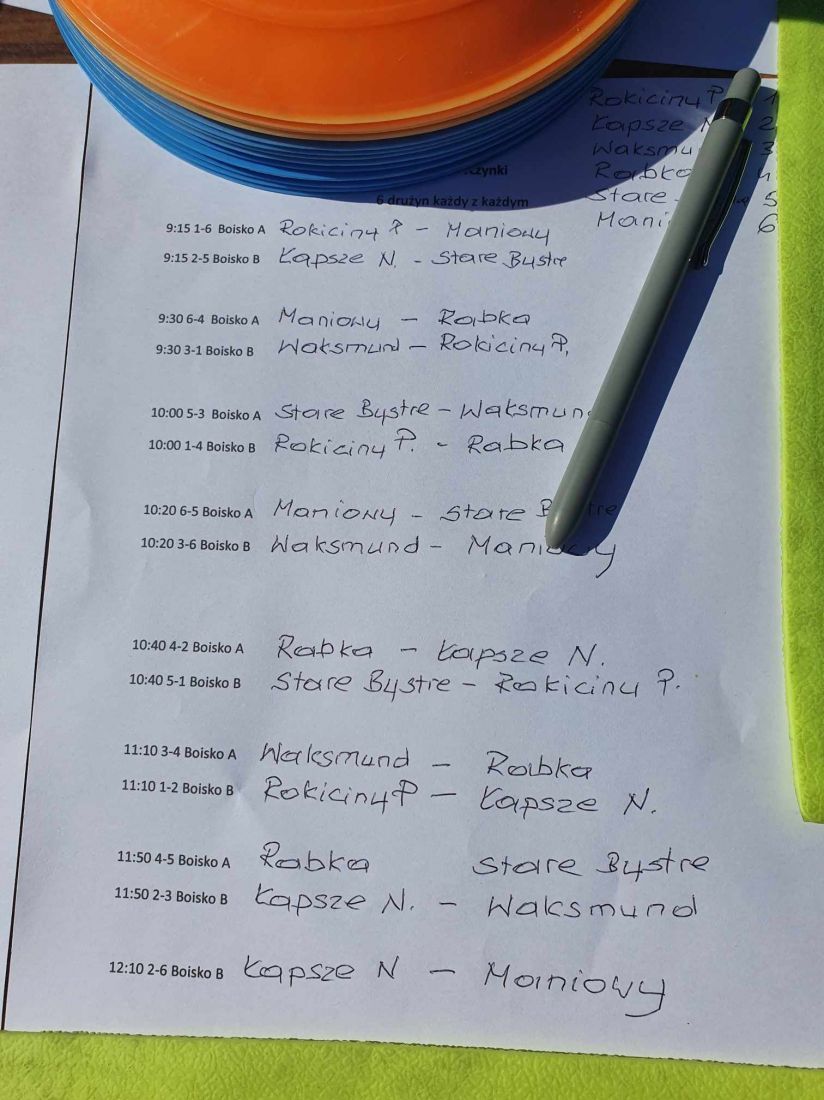 Rokiciny P. 1
Łapsze N 2
Waksmu 3
Rabka 4
Stare 5
Mani 6
czynki
6 drużyn każdy z każdym
9:15 1-6 Boisko A Rokiciny P - Maniowy
9:15 2-5 Boisko B Łapsze N. - Stare Bystre
9:30 6-4 Boisko A Maniowy - Rabka
9:30 3-1 Boisko B Waksmund - Rokiciny P.
10:00 5-3 Boisko A Stare Bystre - Waksmun
10:00 1-4 Boisko B Rokiciny P. - Rabka
10:20 6-5 Boisko A Maniowy - Stare Bystre
10:20 3-6 Boisko B Waksmund - Maniowy
10:40 4-2 Boisko A Rabka - Łapsze N.
10:40 5-1 Boisko B Stare Bystre - Rokiciny P.
11:10 3-4 Boisko A Waksmund - Rabka
11:10 1-2 Boisko B Rokiciny P - Łapsze N.
11:50 4-5 Boisko A Rabka Stare Bystre
11:50 2-3 Boisko B Łapsze N. - Waksmund
12:10 2-6 Boisko B Łapsze N - Maniowy